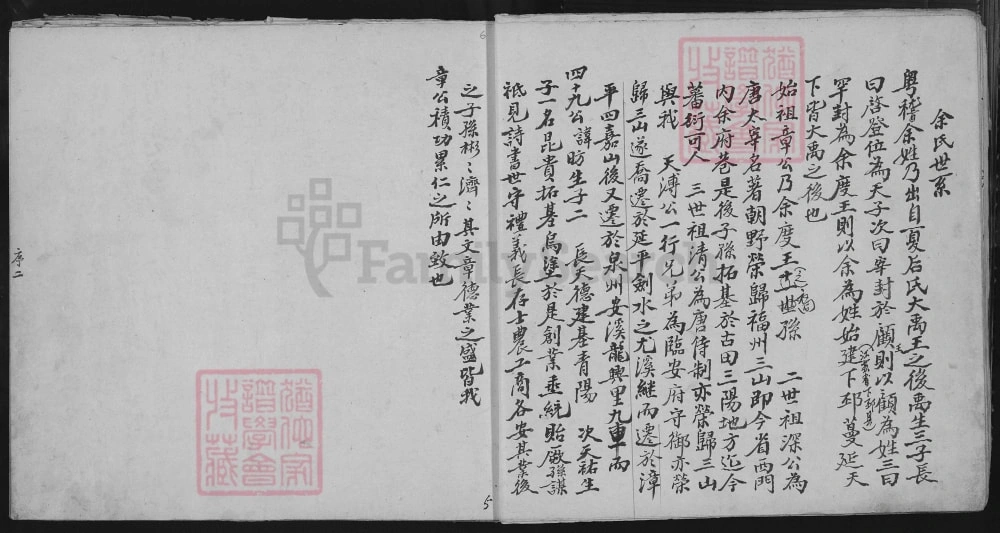 余氏世系
粵稽余姓乃出自夏后氏大禹王之後禹生三子長
曰啓登位為天子次曰罕封於顧王則以顧為姓三曰
罕封為余度王則以余為姓始建下邳(江蘇省下邳縣)蔓延天
下皆大禹之後也
始祖章公乃余度王世孫 二世祖深公為
唐太宰名著朝野榮歸福州三山即今省西門
內余府巷是後子孫拓基於古田三陽地方迄今
蕃衍可人 三世祖清公為唐侍制亦榮歸三山
與我 天溥公一行兄弟為臨安府守御亦榮
歸三山遂喬遷於延平劍水之尤溪継而遷於漳
平四嘉山後又遷於泉州安溪龍興里九車而
四十九公諱昉生子二 長天德建基青陽 次天祐生
子一名昆貴拓基烏塗於是創業垂統貽厥孫謀
祗見詩書世守禮義長存士農工商各安其業後
之子孫彬〻濟〻其文章德業之盛皆我
章公積功累仁之所由致也
序二
6
5
FamilySearch
譜學會
收藏